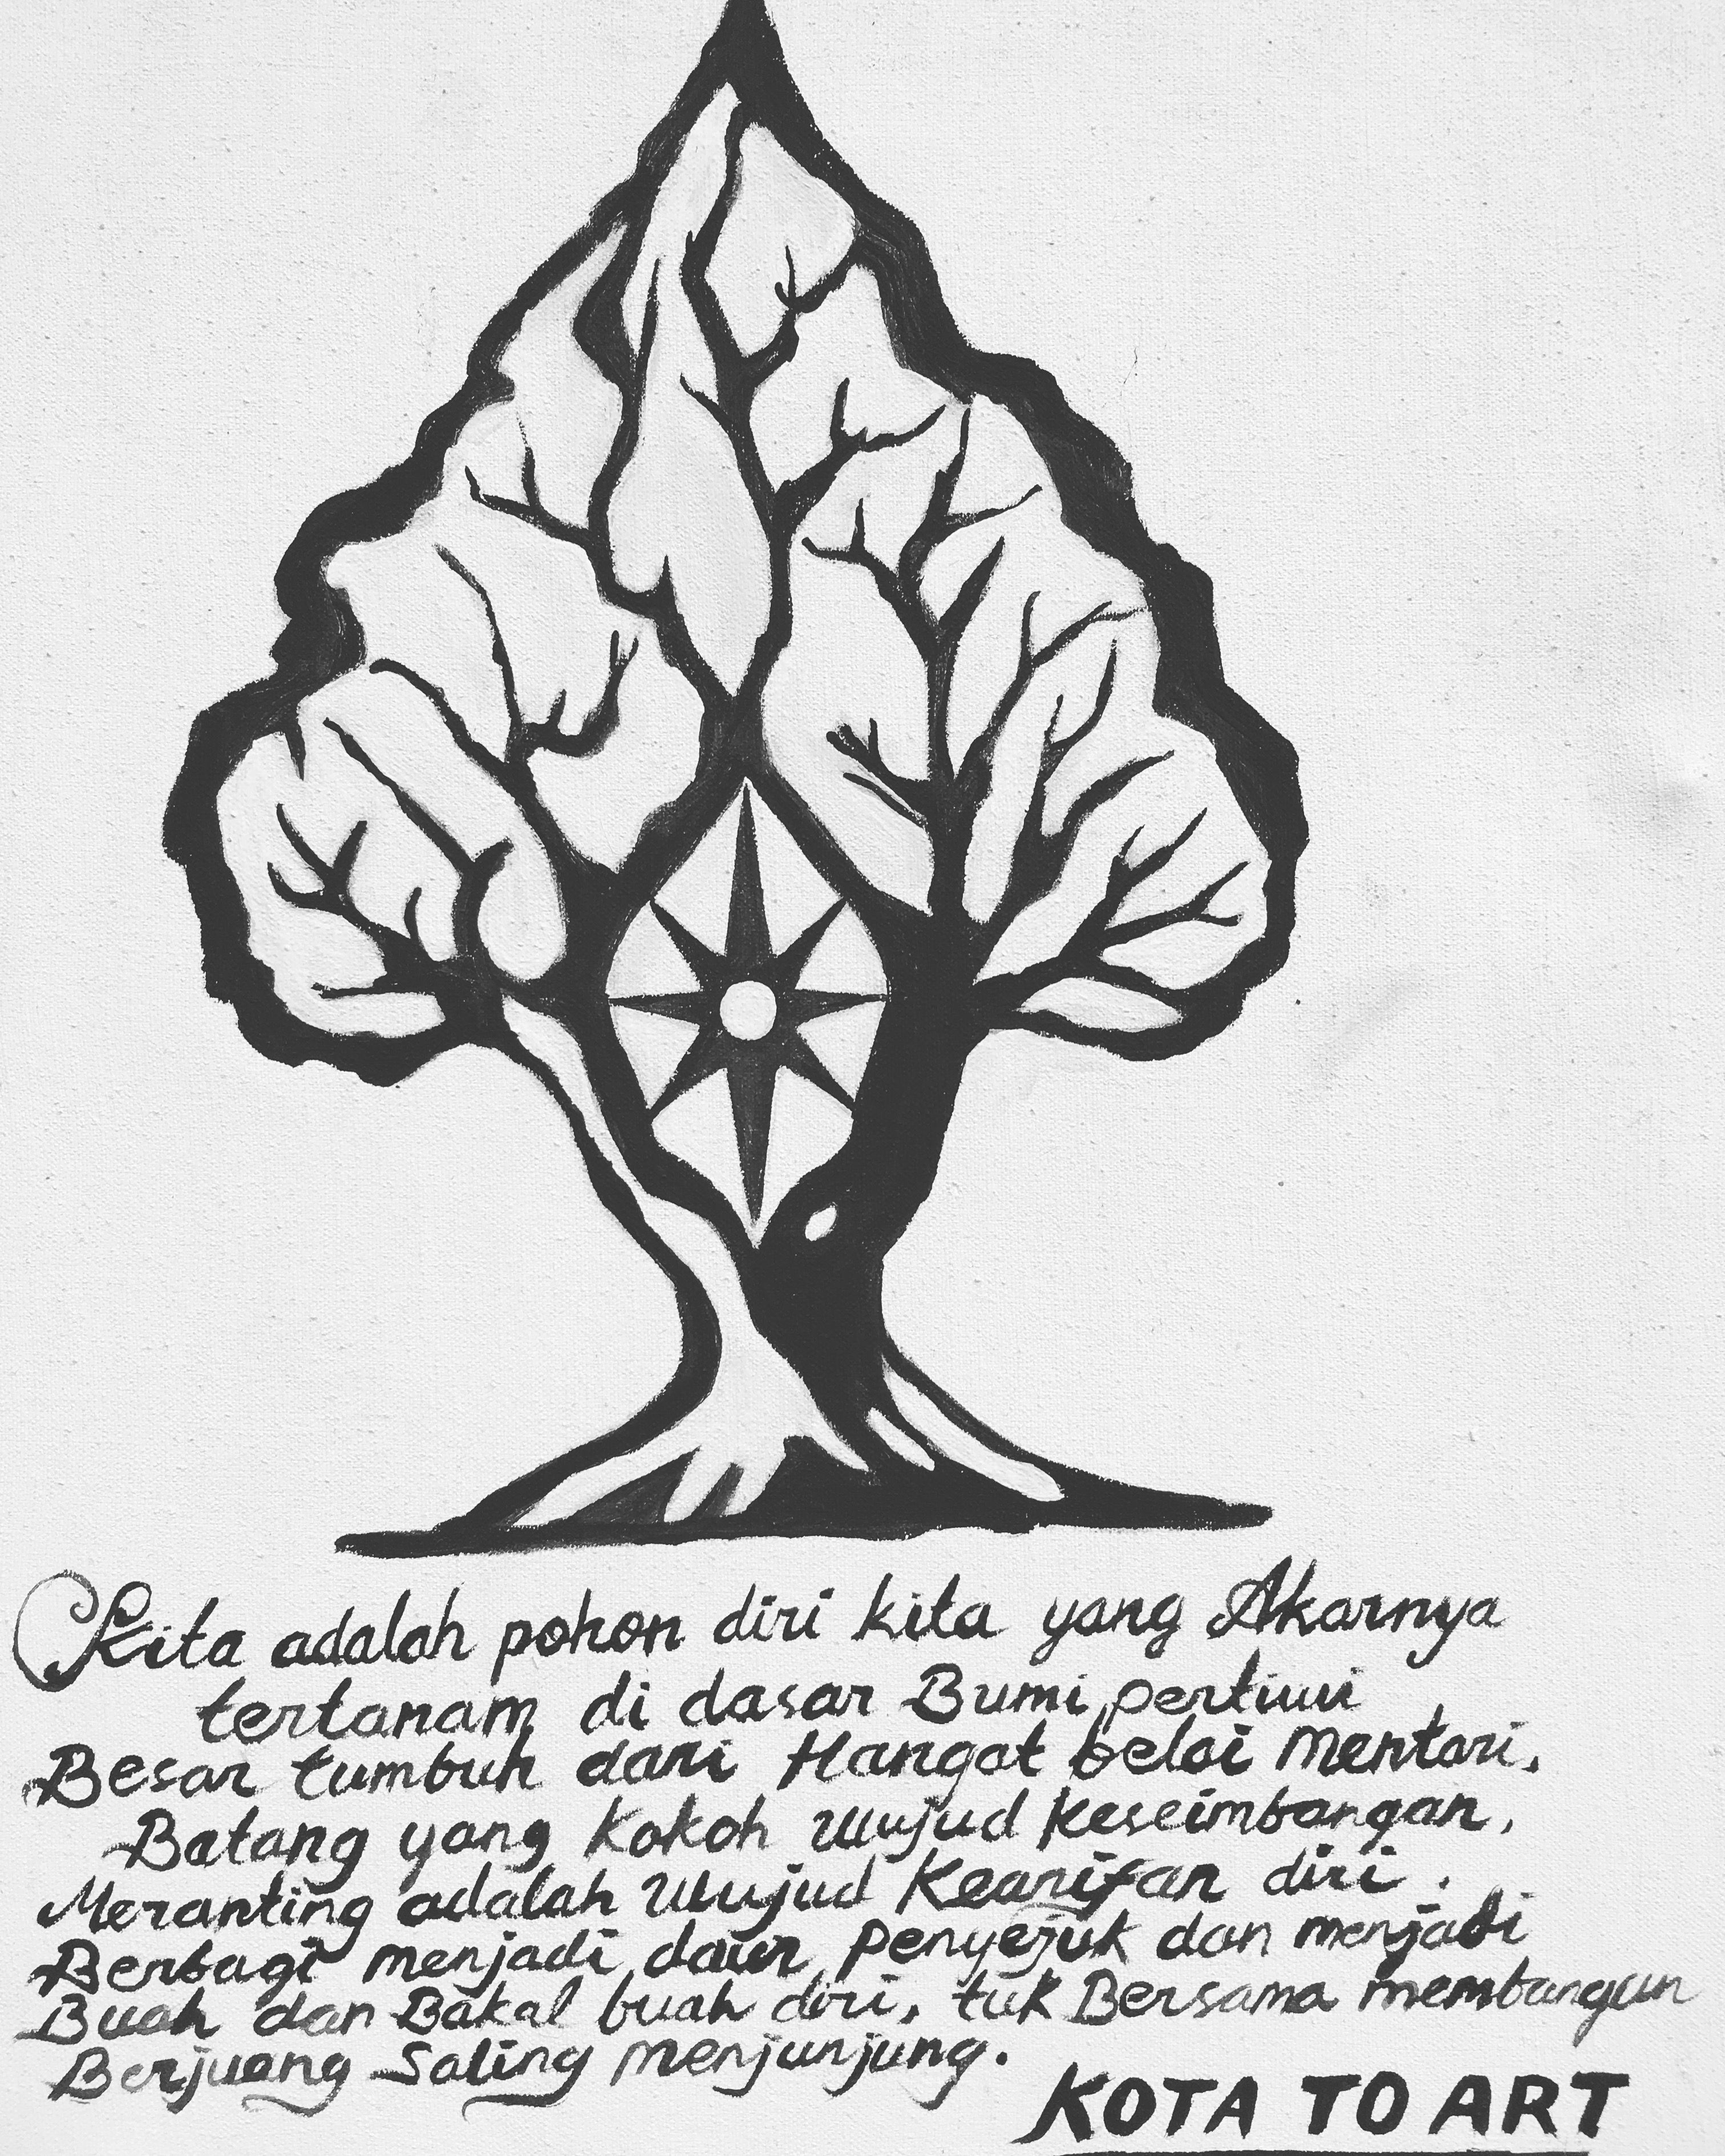 Kita adalah pohon diri kita yang Akarnya
tertanam di dasar Bumi pertiwi
Besar tumbuh dari Hangat belai Mentari,
Batang yang Kokoh Wujud Keseimbangan,
Meranting adalah Wujud Kearifan diri.
Berbagi menjadi daun penyejuk dan menjadi
Buah dan Bakal buah diri, tuk Bersama membangun
Berjuang Saling menjunjung.
KOTA TO ART